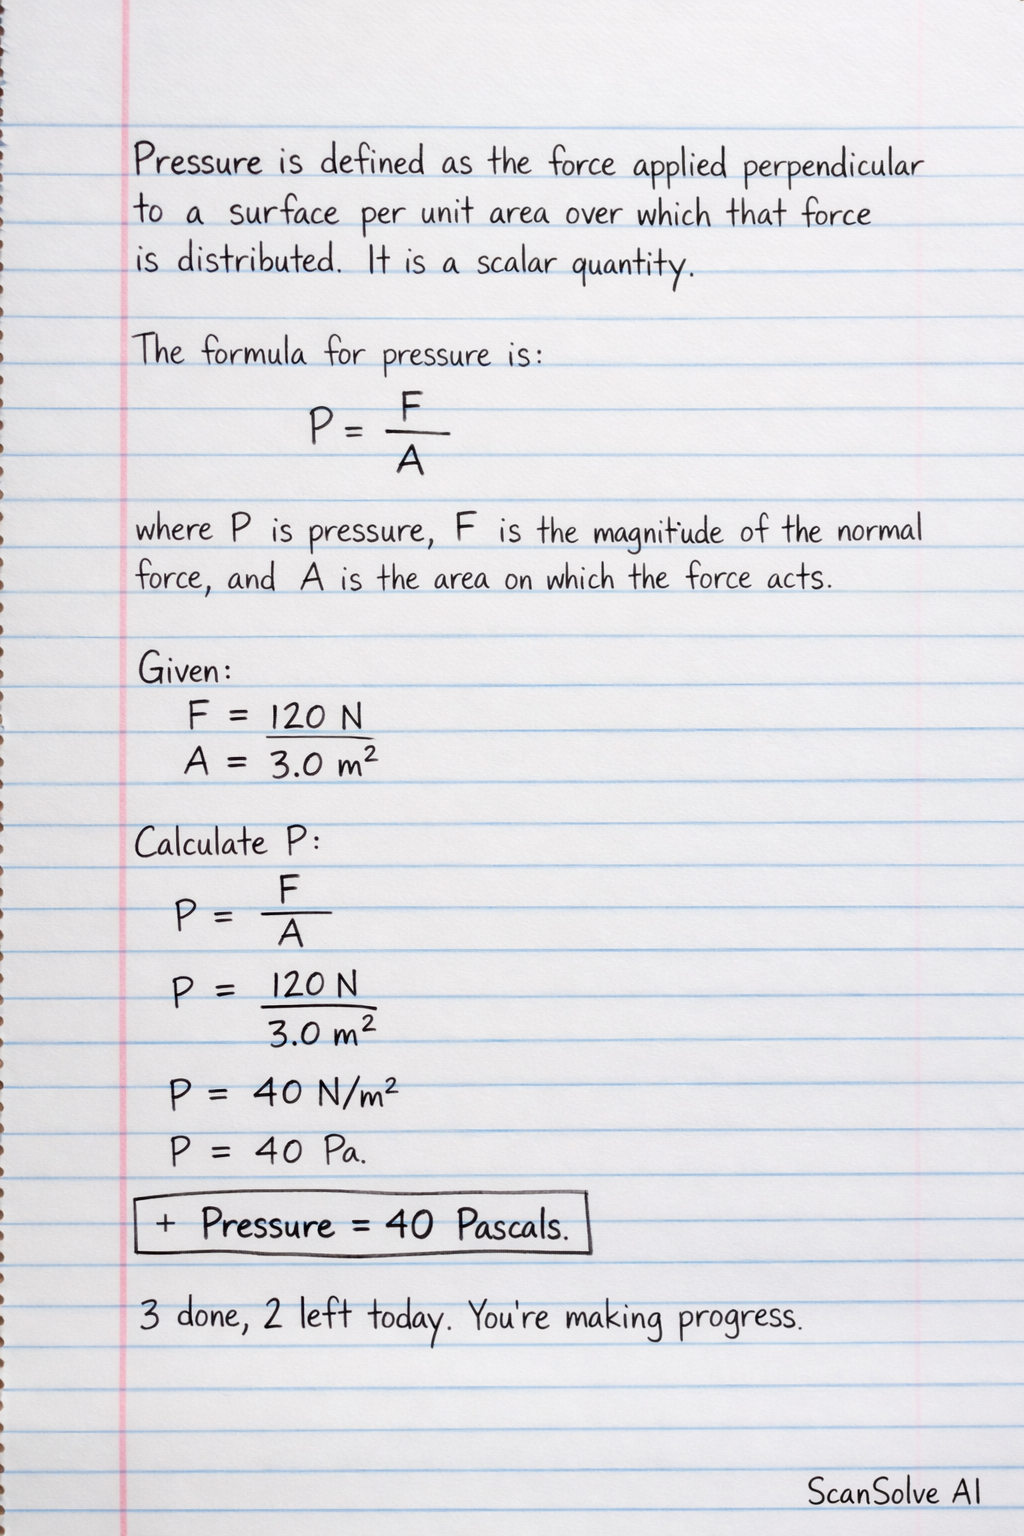 Pressure is defined as the force applied perpendicular
to a surface per unit area over which that force
is distributed. It is a scalar quantity.
The formula for pressure is:
P = F
A
where P is pressure, F is the magnitude of the normal
force, and A is the area on which the force acts.
Given:
F = 120 N
A = 3.0 m²
Calculate P:
P = F
A
P = 120 N
3.0 m²
P = 40 N/m²
P = 40 Pa.
+ Pressure = 40 Pascals.
3 done, 2 left today. You're making progress.
ScanSolve AI